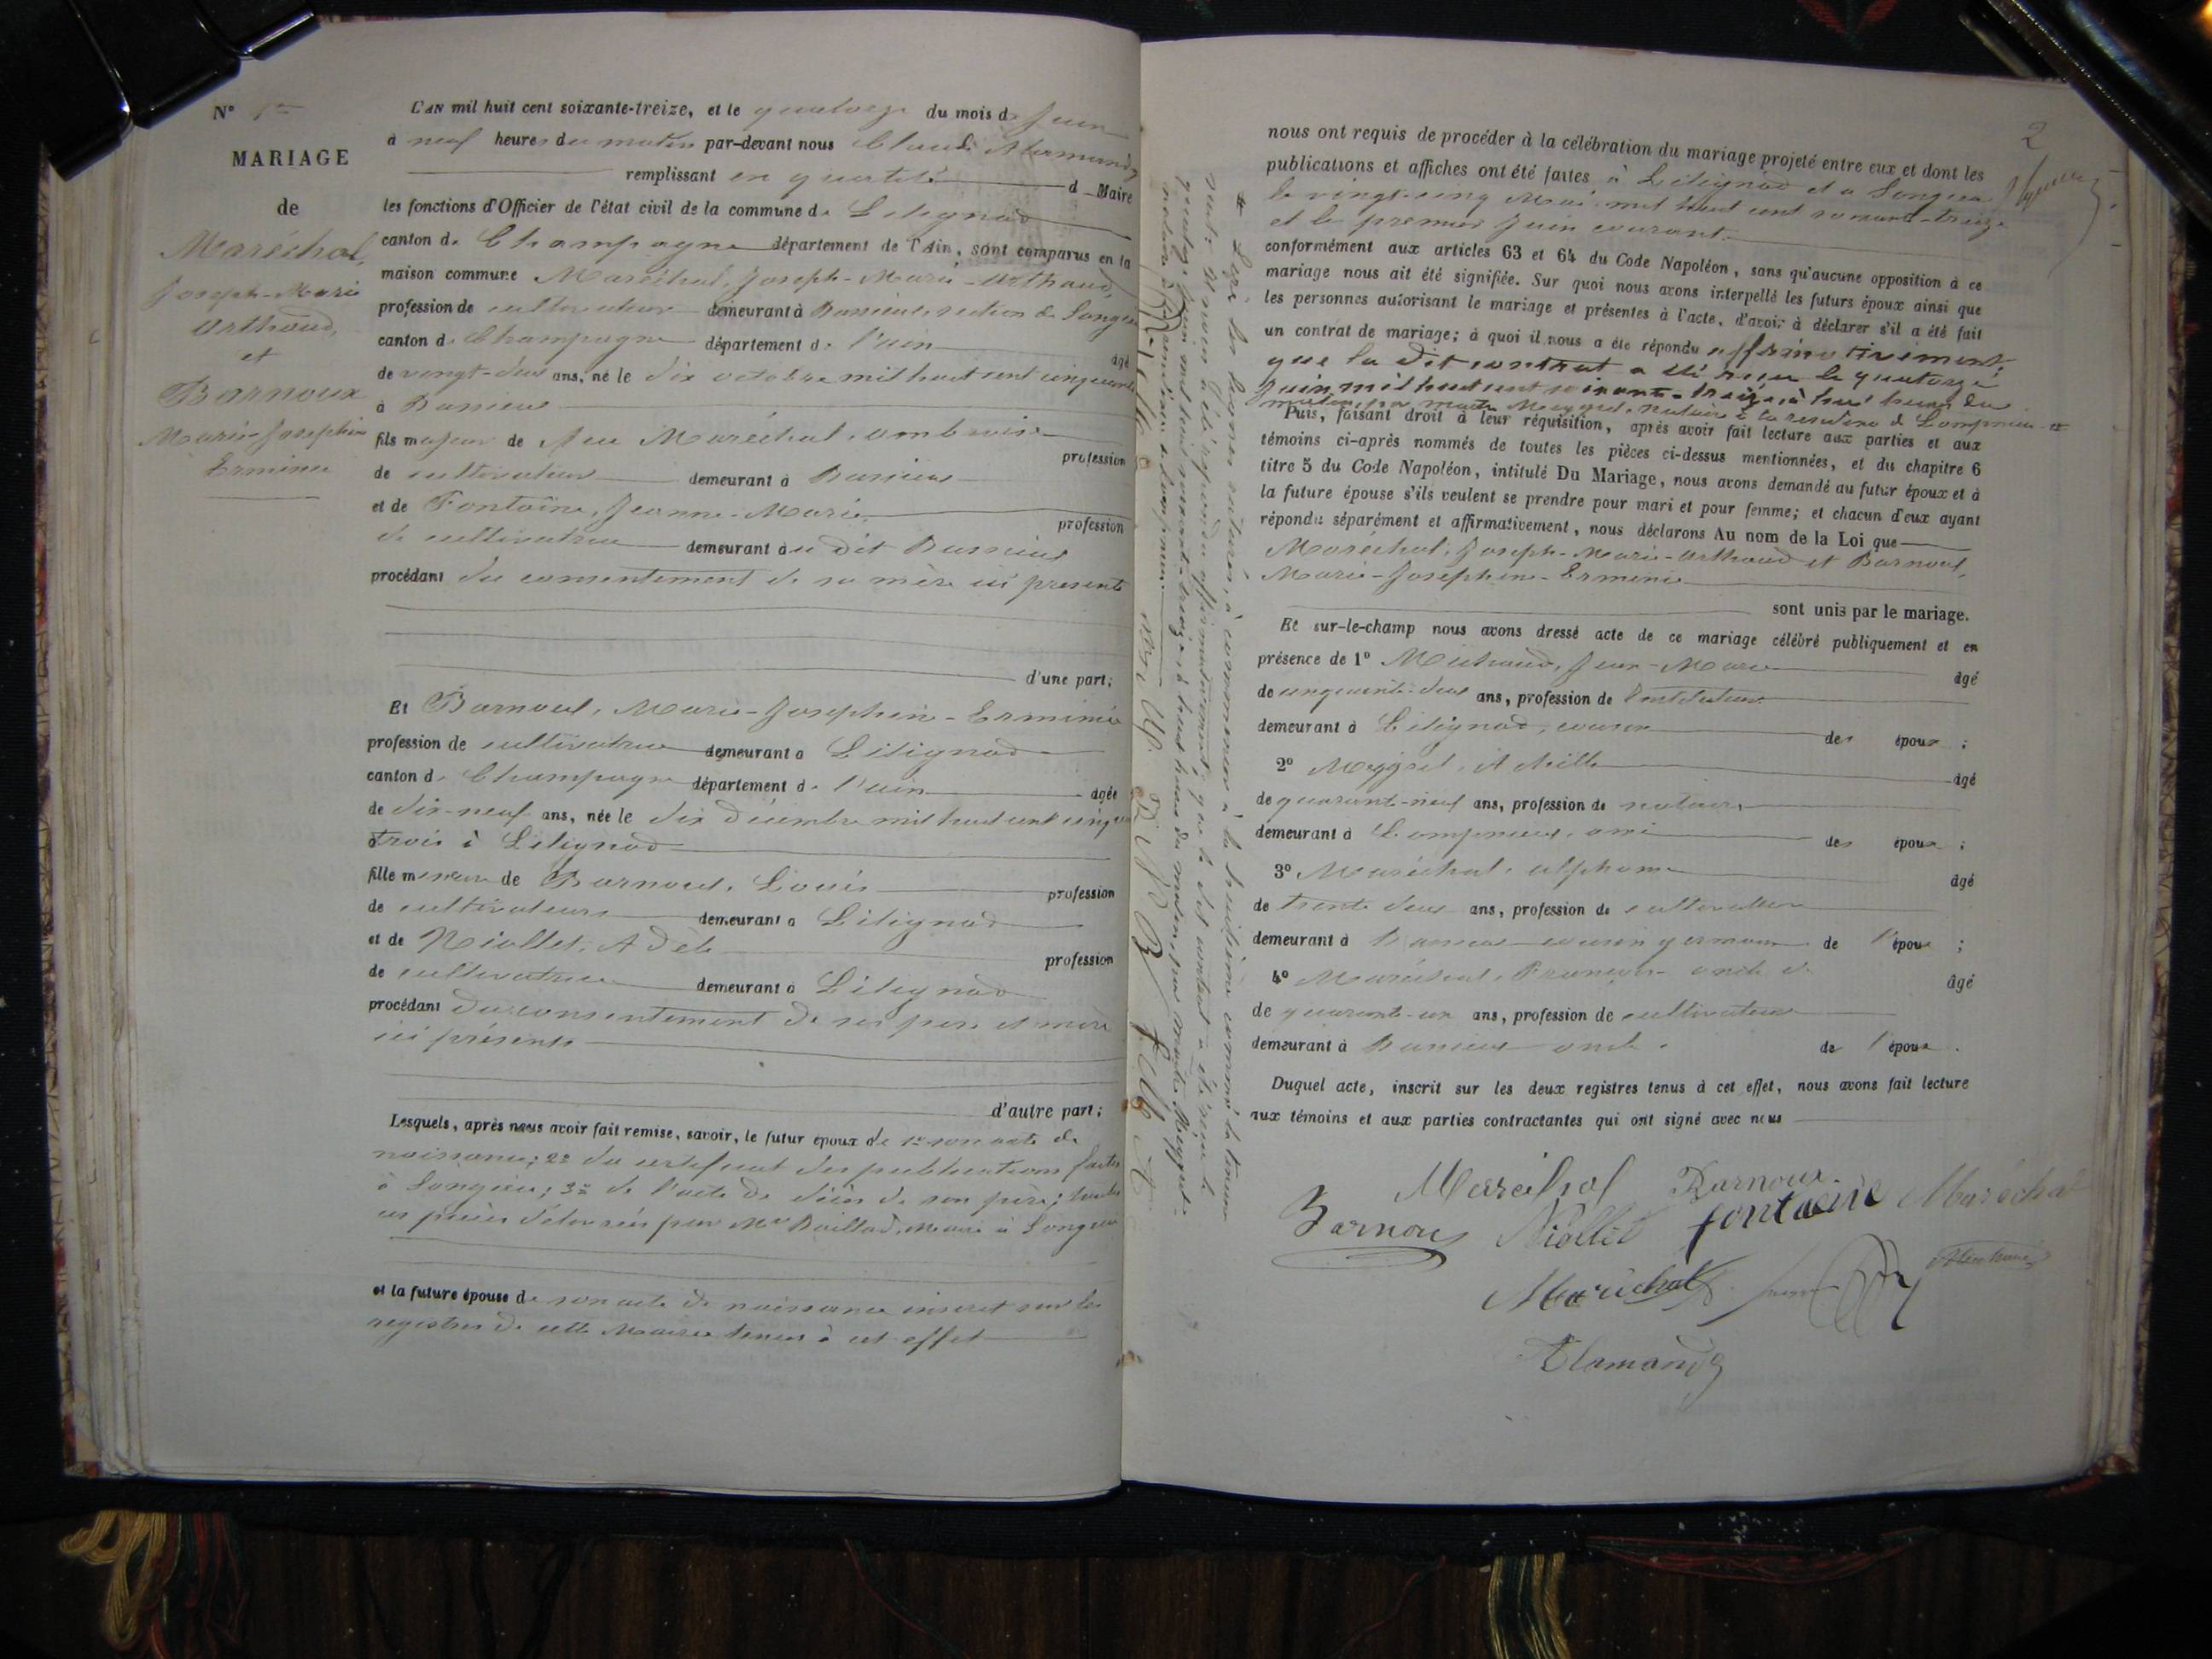 N° 1er
MARIAGE
de
Maréchal,
Joseph-Marie
Arthaud,
et
Barnoux
Marie-Josephine
Erminie
L'AN mil huit cent soixante-treize, et le quatorze du mois de Juin
à neuf heures du matin par-devant nous Claude
remplissant en qualité d Maire
les fonctions d'Officier de l'état civil de la commune de Lilignod
canton de Champagne département de l'Ain, sont comparus en la
maison commune Maréchal, Joseph-Marie-Arthaud,
profession de cultivateur demeurant à section de Songieu
canton de Champagne département de l'ain âgé
de vingt-deux ans, né le dix octobre mil huit cent cinquante
à
fils majeur de feu Maréchal, ambroise profession
de cultivateur demeurant à
et de Fontaine, Jeanne-Marie profession
de cultivatrice demeurant au dit
procédant du consentement de sa mère ici présente
d'une part;
Et Barnoud, Marie-Josephine-Erminie
profession de cultivatrice demeurant à Lilignod
canton de Champagne département de l'ain âgée
de dix-neuf ans, née le dix Décembre mil huit cent cinq
trois à Lilignod
fille mineure de Barnoud, Louis profession
de cultivateur demeurant à Lilignod
et de Niollet, Adèle profession
de cultivatrice demeurant à Lilignod
procédant du consentement de ses père et mère
ici présents
d'autre part;
Lesquels, après nous avoir fait remise, savoir, le futur époux de 1° son acte de
naissance; 2° du certificat des publications faites
à Songieu; 3° de l'acte de décès de son père; toutes
ces pièces délivrées par Mr Baillod, Maire à Songieu
et la future épouse de son acte de naissance inscrit sur les
registres de cette Mairie tenus à cet effet
2
nous ont requis de procéder à la célébration du mariage projeté entre eux et dont les
publications et affiches ont été faites à Lilignod et à Songieu
le vingt-cinq Mai mil huit cent soixante-treize
et le premier Juin courant.
conformément aux articles 63 et 64 du Code Napoléon, sans qu'aucune opposition à ce
mariage nous ait été signifiée. Sur quoi nous avons interpellé les futurs époux ainsi que
les personnes autorisant le mariage et présentes à l'acte, d'avoir à déclarer s'il a été fait
un contrat de mariage; à quoi il nous a été répondu affirmativement,
que le dit contrat a été reçu le quatorze
Juin mil huit cent soixante-treize, à huit heures du
matin, par maître Meygret, notaire à la résidence de Lompnieu #
Puis, faisant droit à leur réquisition, après avoir fait lecture aux parties et aux
témoins ci-après nommés de toutes les pièces ci-dessus mentionnées, et du chapitre 6
titre 5 du Code Napoléon, intitulé Du Mariage, nous avons demandé au futur époux et à
la future épouse s'ils veulent se prendre pour mari et pour femme; et chacun d'eux ayant
répondu séparément et affirmativement, nous déclarons Au nom de la Loi que
Maréchal, Joseph-Marie-Arthaud et Barnoud,
Marie-Josephine-Erminie
sont unis par le mariage.
Et sur-le-champ nous avons dressé acte de ce mariage célébré publiquement et en
présence de 1° Michaud, Jean-Marie âgé
de cinquante-deux ans, profession de Instituteur
demeurant à Lilignod, cousin des époux ;
2° Meygret, Achille âgé
de quarante-neuf ans, profession de notaire
demeurant à Lompnieu, ami des époux ;
3° Maréchal, alphonse âgé
de trente deux ans, profession de cultivateur
demeurant à cousin germain de l'époux ;
4° Maréchal, François âgé
de quarante-un ans, profession de cultivateur
demeurant à oncle de l'époux .
Duquel acte, inscrit sur les deux registres tenus à cet effet, nous avons fait lecture
aux témoins et aux parties contractantes qui ont signé avec nous
Maréchal Barnoux
Barnoux Niollet fontaine Maréchal
Maréchal
# Sur les lignes à commencer à la huitième comme la teneur
suit: nous a été répondu affirmativement, que le dit contrat a été reçu le
quatorze Juin mil huit cent soixante-treize, à huit heures du matin, par maître Meygret
notaire à la résidence de Lompnieu.